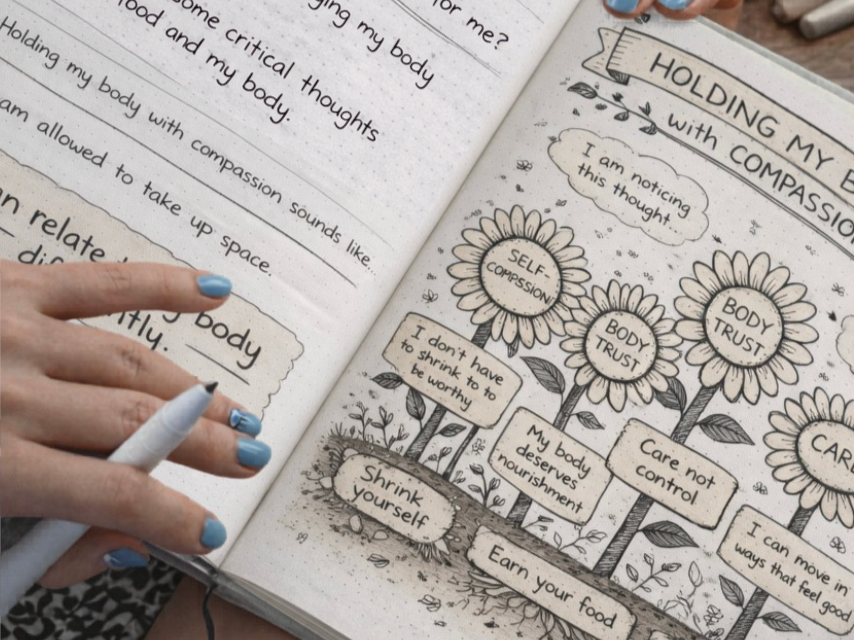 for me?
my body
some critical thoughts
food and my body.
Holding my body with compassion sounds like...
am allowed to take up space.
relate
body
HOLDING MY
with COMPASSION
I am noticing
this thought..
SELF-
COMPSSION
BODY
TRUST
BODY
TRUST
CARE
I don't have
to shrink to to
be worthy
My body
deserves
nourishment
Care not
control
I can move in
ways that feel good
Shrink
yourself
Earn your food